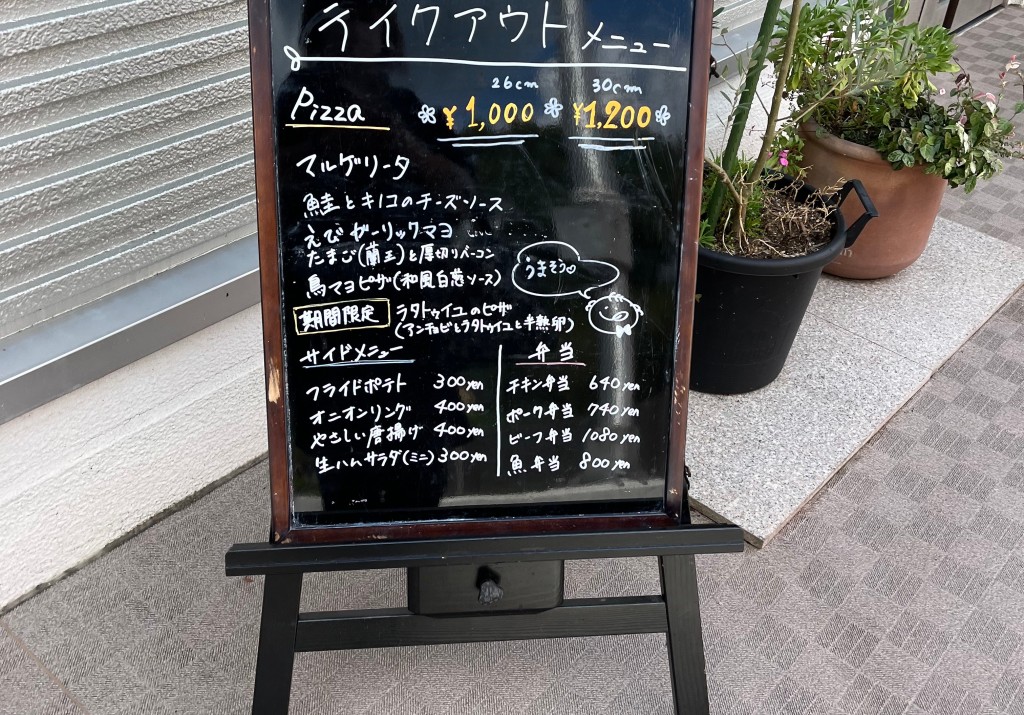 テイクアウトメニュー
26cm 30cm
Pizza ¥1,000 ¥1,200
マルゲリータ
鮭とキノコのチーズソース
えびガーリックマヨ
たまご(蘭王)と厚切りベーコン
鳥マヨピザ(和風白葱ソース)
うまそう♡
期間限定 ラタトゥイユのピザ
(アンチョビとラタトゥイユと半熟卵)
サイドメニュー
フライドポテト 300yen
オニオンリング 400yen
やさしい唐揚げ 400yen
生ハムサラダ(ミニ) 300yen
弁当
チキン弁当 640yen
ポーク弁当 740yen
ビーフ弁当 1080yen
魚弁当 800yen